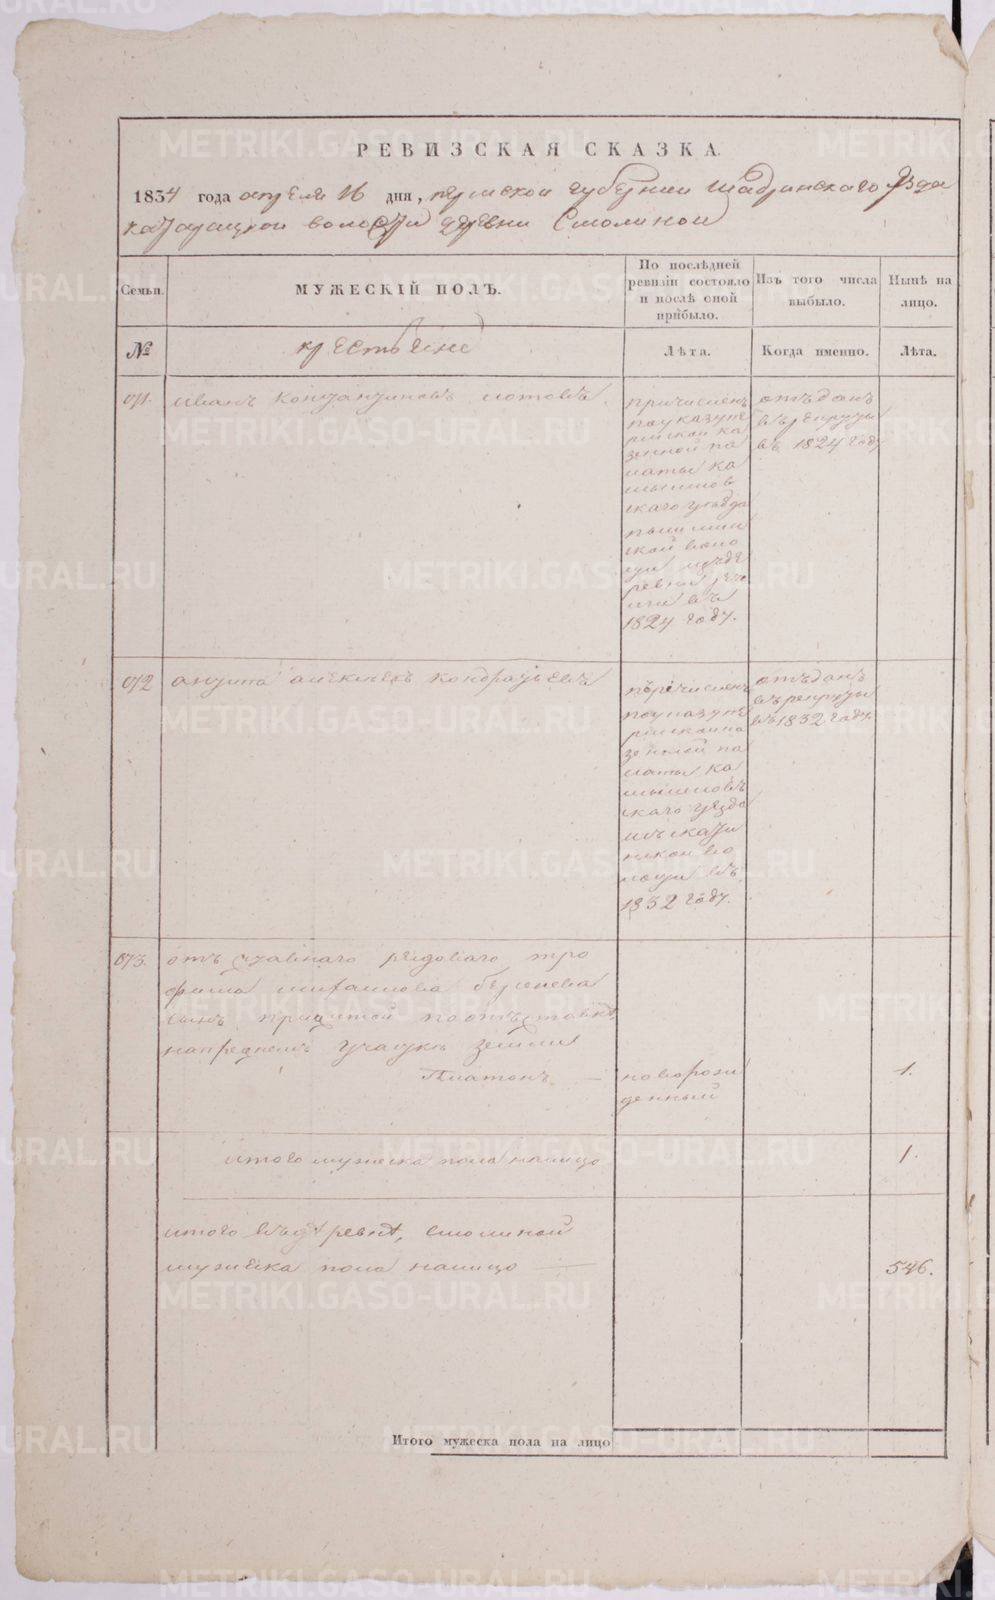 РЕВИЗСКАЯ СКАЗКА.
1834 года апреля 16 дни, пермской губернии Шадринскаго уезда
волости деревни Смолиной
Семьи.
МУЖЕСКІЙ ПОЛЪ.
По послѣдней
ревизіи состояло
и послѣ оной
прибыло.
Изъ того числа
выбыло.
Нынѣ на
лицо.
№
крестьяне
Лѣта.
Когда именно.
Лѣта.
071.
иванъ
причисленъ
по указу пе
рмской ка
зенной па
латы ка
мышлов
скаго уезда
ской воло
сти изъ де
ревни
въ
1824 году.
отъданъ
въ рекруты
въ 1824 году
072
алексеевъ кондратьевъ
перечисленъ
по указу пе
рмской ка
зенной па
латы ка
мышловъ
скаго уезда
изъ
ской во
лости въ
1832 году.
отъданъ
въ рекруты
въ 1832 году.
073.
отъставнаго редоваго тро
фима михаилова берсенева
сынъ прижитой по отъставкѣ
участке земли
Платонъ —
новорож
денный
1.
итого мужеска пола налицо
1.
итого въ деревнѣ, смолиной
мужеска пола налицо —
546.
Итого мужеска пола на лицо
METRIKI.GASO-URAL.RU